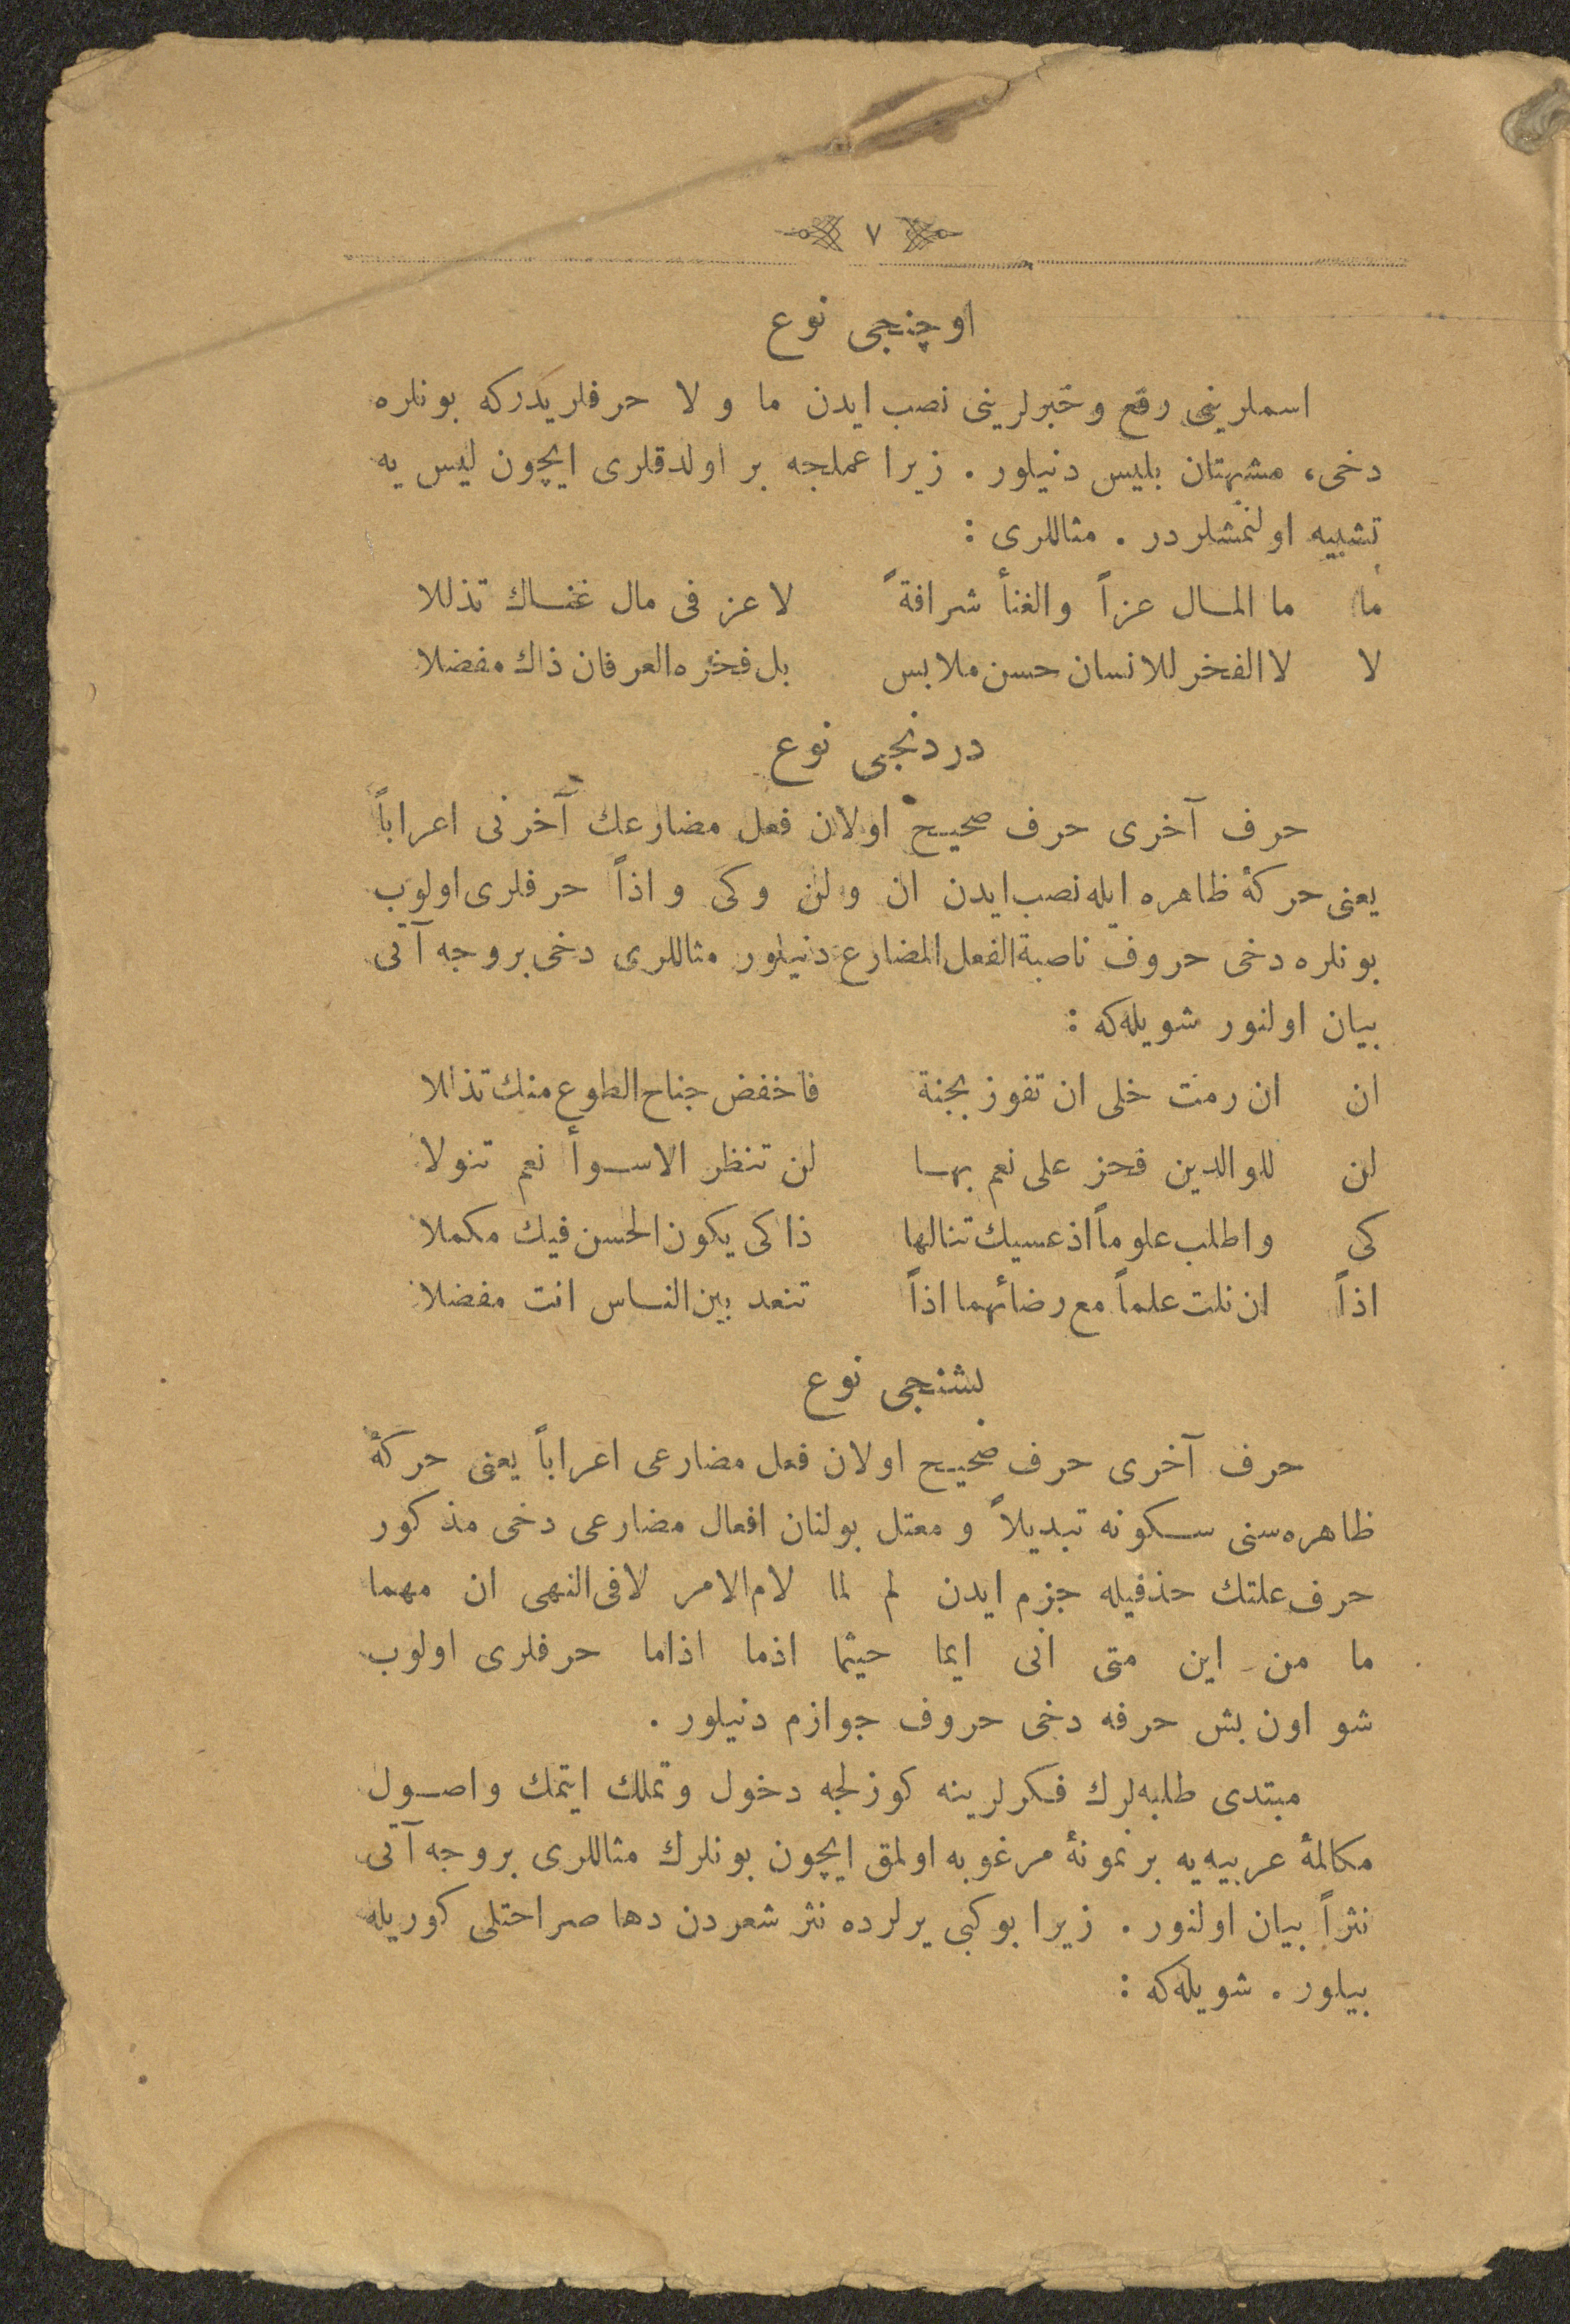 ٧
اوچنجی نوع
اسملرینی رفع وخبرلرینی نصب ایدن ما و لا حرفلریدركه بونلره
دخی، مشبهتان بلیس دنیلور . زیرا عملجه بر اولدقلری ایچون لیس یه
تشبیه اولنمشلردر . مثاللری :
ما ما المال عزاً والغنأ شرافةً لا عز فی مال غناك تذللا
لا لا الفخر للانسان حسن ملابس بل فخره العرفان ذاك مفضلا
دردنجی نوع
حرف آخری حرف صحیح اولان فعل مضارعك آخرنی اعراباً
یعنی حركهٔ ظاهره ایله نصب ایدن ان ولن وكی واذاً حرفلری اولوب
بونلره دخی حروف ناصبة الفعل المضارع دنیلور مثاللری دخی بروجه آتی
بیان اولنور شویله‌كه :
ان ان رمت خلی ان تفوز بجنة فاخفض جناح الطوع منك تذللا
لن للوالدین فحز علی نعم بها لن تنظر الاسوأ نعم تنولا
كی واطلب علوماً اذ عسیك تنالها ذا كی یكون الحسن فیك مكملا
اذاً ان نلت علماً مع رضائهما اذاً تنعد بین الناس انت مفضلا
بشنجی نوع
حرف آخری حرف صحیح اولان فعل مضارعی اعراباً یعنی حركهٔ
ظاهره‌سنی سكونه تبدیلاً و معتل بولنان افعال مضارعی دخی مذكور
حرف علتك حذفیله جزم ایدن لم لما لام الامر لا فی النهی ان مهما
ما من این متی انی ایما حیثما اذما اذاما حرفلری اولوب
شو اون بش حرفه دخی حروف جوازم دنیلور .
مبتدی طلبه‌لرك فكرلرینه كوزلجه دخول وتملك ایتمك واصول
مكالمهٔ عربیه‌یه بر نمونهٔ مرغوبه اولمق ایچون بونلرك مثاللری بروجه آتی
نثراً بیان اولنور . زیرا بوكبی یرلرده نثر شعردن دها صراحتلی كوریله
بیلور . شویله‌كه :